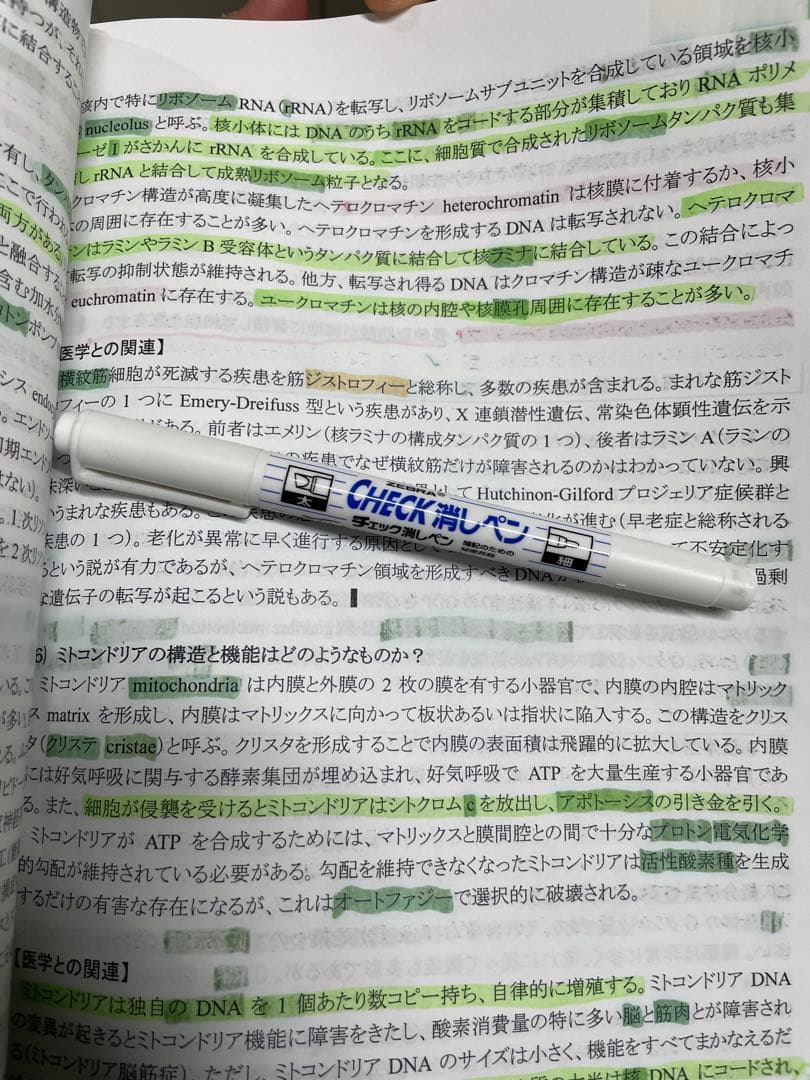 構造物
核内で特にリボソーム RNA（rRNA）を転写し、リボソームサブユニットを合成している領域を核小
nucleolus と呼ぶ。核小体には DNA のうち rRNA をコードする部分が集積しており RNA ポリメ
ーゼ I がさかんに rRNA を合成している。ここに、細胞質で合成されたリボソームタンパク質も集
し rRNA と結合して成熟リボソーム粒子となる。
クロマチン構造が高度に凝集したヘテロクロマチン heterochromatin は核膜に付着するか、核小
の周囲に存在することが多い。ヘテロクロマチンを形成する DNA は転写されない。ヘテロクロマ
ンはラミンやラミン B 受容体というタンパク質に結合して核ラミナに結合している。この結合によっ
転写の抑制状態が維持される。他方、転写され得る DNA はクロマチン構造が疎なユークロマチ
euchromatin に存在する。ユークロマチンは核の内腔や核膜孔周囲に存在することが多い。
医学との関連】
横紋筋細胞が死滅する疾患を筋ジストロフィーと総称し、多数の疾患が含まれる。まれな筋ジスト
フィーの 1 つに Emery-Dreifuss 型という疾患があり、X 連鎖潜性遺伝、常染色体顕性遺伝を示
がある。前者はエメリン（核ラミナの構成タンパク質の 1 つ）、後者はラミン A（ラミンの
の疾患でなぜ横紋筋だけが障害されるのかはわかっていない。興
味深い
として Hutchinon-Gilford プロジェリア症候群と
いうまれな疾患もある。
化が進む（早老症と総称される
疾患の 1 つ）。老化が異常に早く進行する原因として
て不安定化す
るという説が有力であるが、ヘテロクロマチン領域を形成すべき DNA が
過剰
な遺伝子の転写が起こるという説もある。
ZEBRA
CHECK 消しペン
チェック消しペン
暗記のための
太
細
6) ミトコンドリアの構造と機能はどのようなものか？
ミトコンドリア mitochondria は内膜と外膜の 2 枚の膜を有する小器官で、内膜の内腔はマトリック
ス matrix を形成し、内膜はマトリックスに向かって板状あるいは指状に陥入する。この構造をクリス
タ（クリステ cristae）と呼ぶ。クリスタを形成することで内膜の表面積は飛躍的に拡大している。内膜
には好気呼吸に関与する酵素集団が埋め込まれ、好気呼吸で ATP を大量生産する小器官であ
る。また、細胞が侵襲を受けるとミトコンドリアはシトクロム c を放出し、アポトーシスの引き金を引く。
ミトコンドリアが ATP を合成するためには、マトリックスと膜間腔との間で十分なプロトン電気化学
的勾配が維持されている必要がある。勾配を維持できなくなったミトコンドリアは活性酸素種を生成
するだけの有害な存在になるが、これはオートファジーで選択的に破壊される。
【医学との関連】
ミトコンドリアは独自の DNA を 1 個あたり数コピー持ち、自律的に増殖する。ミトコンドリア DNA
の変異が起きるとミトコンドリア機能に障害をきたし、酸素消費量の特に多い脳と筋肉とが障害され
る（ミトコンドリア脳筋症）。ただし、ミトコンドリア DNA のサイズは小さく、機能をすべてまかなえるだ
核 DNA にコードされ、